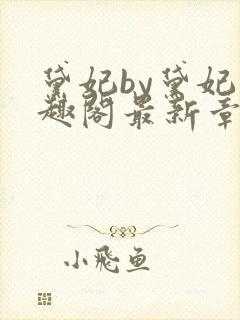 黛妃by黛妃
趣阁最新章
小飞鱼